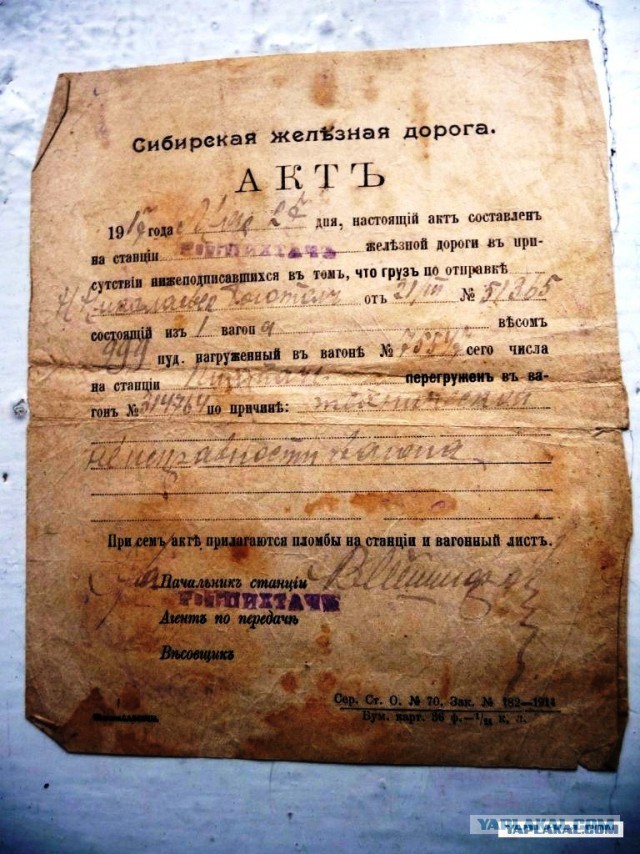 Сибирская желѣзная дорога.
АКТЪ
191 года Мая 2 дня, настоящій актъ составленъ
на станціи желѣзной дороги въ при-
сутствіи нижеподписавшихся въ томъ, что грузъ по отправкѣ
отъ 21/III № 51365
состоящій изъ 1 вагона вѣсомъ
999 пуд. нагруженный въ вагонѣ № сего числа
на станціи перегруженъ въ ва-
гонъ № 314764 по причинѣ: техническая
неисправность вагона
При семъ актѣ прилагаются пломбы на станціи и вагонный листъ.
Начальникъ станціи
Агентъ по передачѣ
Вѣсовщикъ
Сер. Ст. О. № 70. Зак. № 782—1914
Бум. карт. 36 ф.—1/11 к. л.
YAPLAKAL.COM
YAPLAKAL.COM